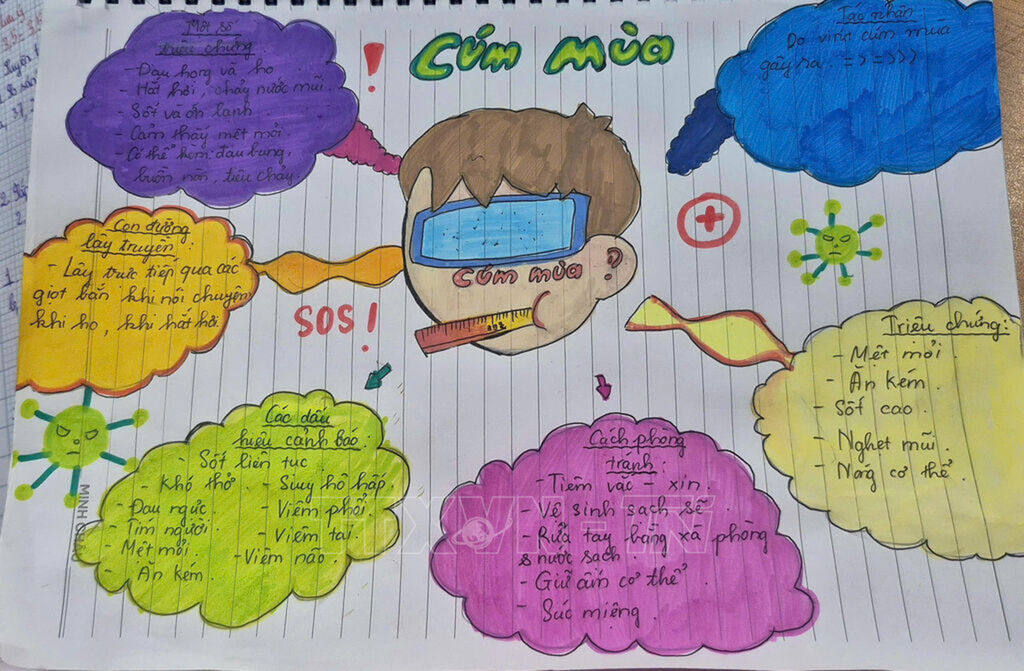 CÚM MÙA
Một số
triệu chứng
- Đau họng và ho
- Hắt hơi, chảy nước mũi.
- Sốt và ớn lạnh
- Cảm thấy mệt mỏi
- Có thể kèm đau bụng,
buồn nôn, tiêu chảy.
!
Tác nhân
Do virut cúm mùa
gây ra. => =>>>
Con đường
lây truyền
- Lây trực tiếp qua các
giọt bắn khi nói chuyện,
khi ho, khi hắt hơi.
CÚM MÙA
SOS!
Triệu chứng:
- Mệt mỏi.
- Ăn kém.
- Sốt cao.
- Nghẹt mũi.
- Nóng cơ thể.
Các dấu
hiệu cảnh báo:
- Sốt liên tục
- Khó thở. - Suy hô hấp.
- Đau ngực. - Viêm phổi.
- Tím người. - Viêm tai.
- Mệt mỏi. - Viêm não.
- Ăn kém.
Cách phòng
tránh:
- Tiêm vắc - xin.
- Vệ sinh sạch sẽ.
- Rửa tay bằng xà phòng
& nước sạch.
- Giữ ấm cơ thể.
- Súc miệng.
MINH